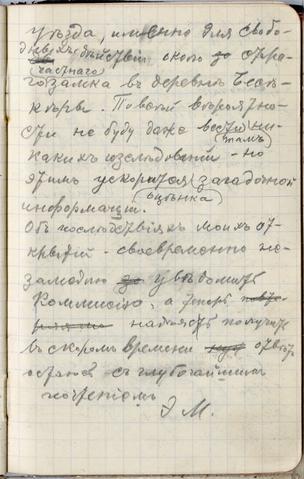 уѣзда, именно для свобо-
дныхъ дѣйствій около
(частнаго)
замка въ деревнѣ
По всей вѣроятно-
сти не буду даже вести
тамъ
какихъ изслѣдованій - но
этимъ ускорится загадочной
оцѣнка
информации.
Объ послѣдствіяхъ моихъ от-
крытій - своевременно не-
замедлю увѣдомить
Коммисію, а теперь
надѣясь получить
въ скоромъ времени отвѣтъ
остаюсь съ глубочайшимъ
почтеніемъ
Э М.